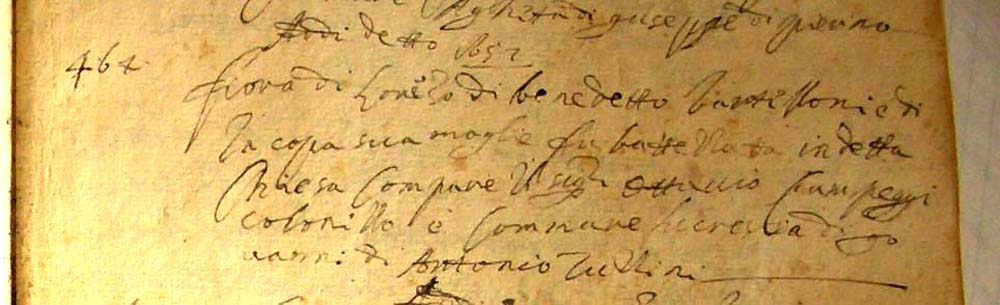 Aghita di giuseppe di pierino
Addi detto 1652
464 fiora di Lorēzo di benedetto Santilloni e di
Iacopa sua moglie fu battezzata in detta
Chiesa Compare Il sigr ottavio Campeggi
colonillo e Commare lucrezia di go
vanni di Antonio Tullini